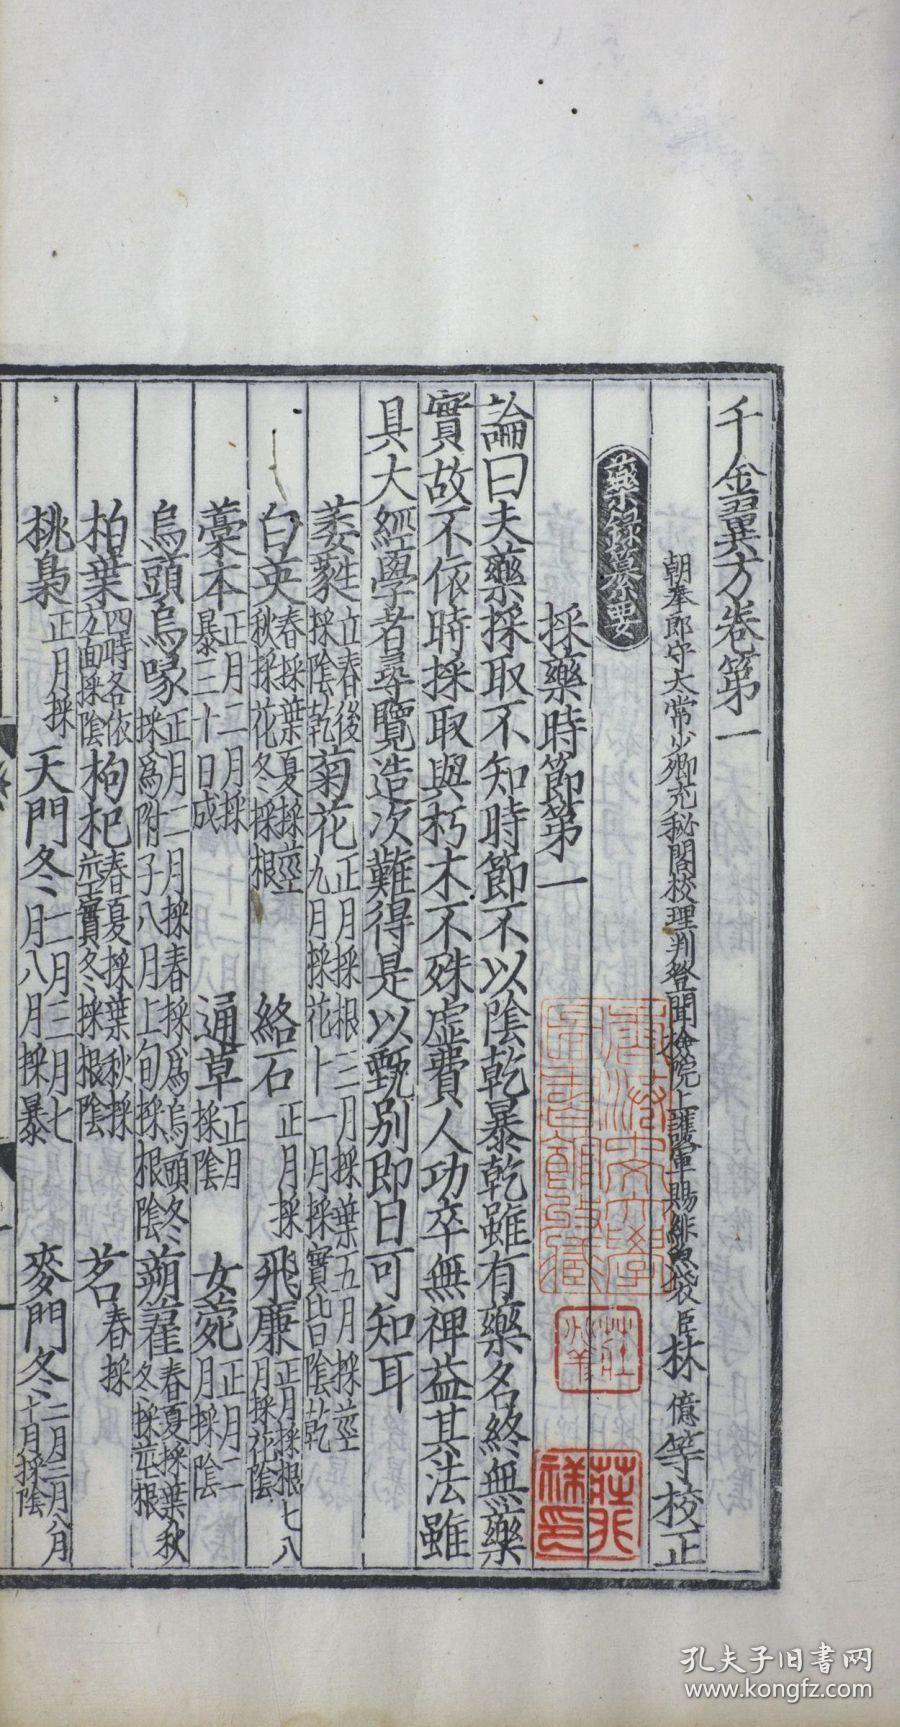 千金翼方卷第一
朝奉郎守太常少卿充秘閣校理判登聞檢院上護軍賜緋魚袋臣林億等校正
藥錄纂要
採藥時節第一
論曰夫藥採取不知時節不以陰乾暴乾雖有藥名終無藥
實故不依時採取與朽木不殊虛費人功卒無裨益其法雖
具大經學者尋覽造次難得是以甄別即日可知耳
萎蕤立春後採陰乾 菊花正月採根三月採葉五月採莖九月採花十一月採實皆陰乾
白英春採葉夏採莖秋採花冬採根 絡石正月採 飛廉正月採根七八月採花陰
藁本正月二月採暴三十日成 通草正月採陰 女菀正月二月採陰
烏頭烏喙正月二月採春採爲烏頭冬採爲附子八月上旬採根陰 蒴藋春夏採葉秋冬採莖根
柏葉四時各依方面採陰 枸杞春夏採葉秋採莖實冬採根陰 茗春採
桃梟正月採 天門冬二月三月七月八月採暴 麥門冬二月三月八月十月採陰
莊祥印
孔夫子旧書网
www.kongfz.com